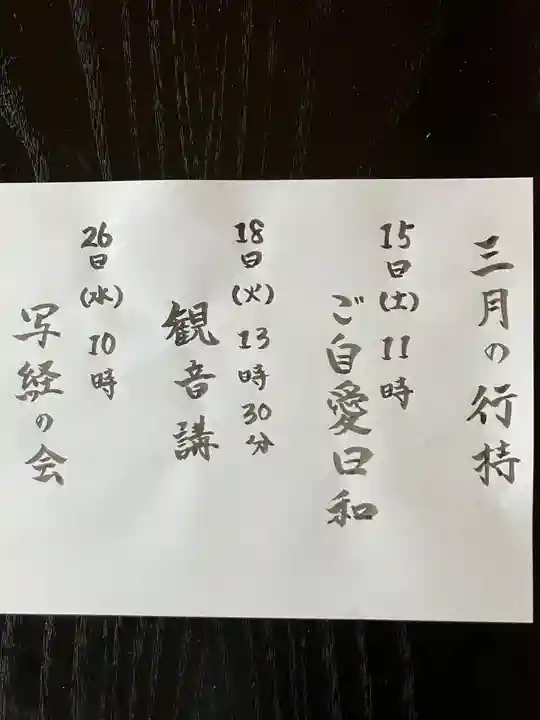 三月の行持
15日(土)11時
ご自愛日和
18日(火)13時30分
観音講
26日(水)10時
写経の会